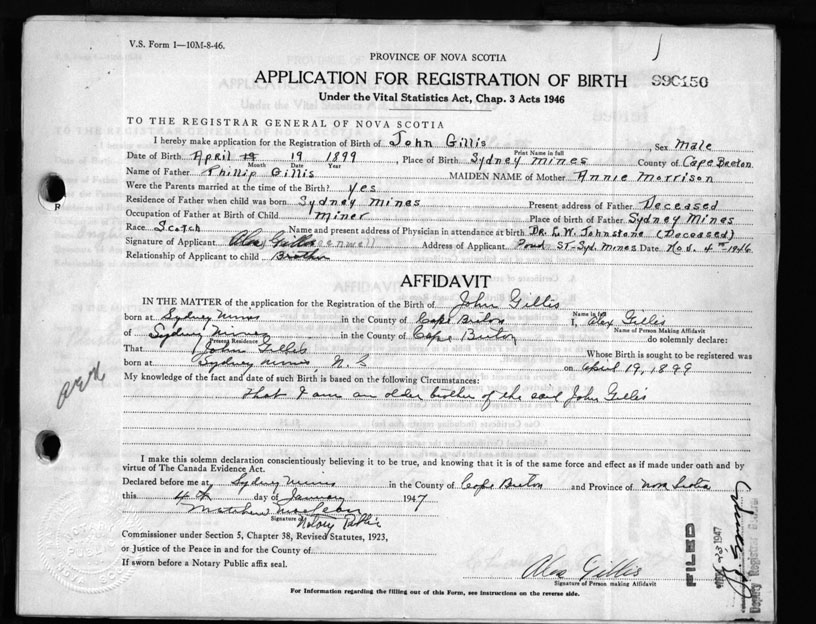 V.S. Form 1—10M-8-46.
PROVINCE OF NOVA SCOTIA
APPLICATION FOR REGISTRATION OF BIRTH S90150
Under the Vital Statistics Act, Chap. 3 Acts 1946
TO THE REGISTRAR GENERAL OF NOVA SCOTIA
I hereby make application for the Registration of Birth of John Gillis Sex Male
Print Name in full
Date of Birth April 19 1899, Place of Birth Sydney Mines County of Cape Breton
Month Date Year
Name of Father Phillip Gillis MAIDEN NAME of Mother Annie Morrison
Were the Parents married at the time of the Birth? yes
Residence of Father when child was born Sydney Mines Present address of Father Deceased
Occupation of Father at Birth of Child Miner Place of birth of Father Sydney Mines
Race Scotch Name and present address of Physician in attendance at birth Dr. L. W. Johnstone (Deceased)
Signature of Applicant Alex Gillis Address of Applicant Pond St. Syd. Mines Date Nov. 4th 1946
Relationship of Applicant to child Brother
AFFIDAVIT
IN THE MATTER of the application for the Registration of the Birth of John Gillis
born at Sydney Mines in the County of Cape Breton I, Alex Gillis
Name in full
Name of Person Making Affidavit
of Sydney Mines in the County of Cape Breton do solemnly declare:
Present Residence
That John Gillis Whose Birth is sought to be registered was
born at Sydney Mines, N. S on April 19, 1899
My knowledge of the fact and date of such Birth is based on the following Circumstances:
That I am an older brother of the said John Gillis
I make this solemn declaration conscientiously believing it to be true, and knowing that it is of the same force and effect as if made under oath and by
virtue of The Canada Evidence Act.
Declared before me at Sydney Mines in the County of Cape Breton and Province of Nova Scotia
this 4th day of January 1947
Signature of Notary Public
Commissioner under Section 5, Chapter 38, Revised Statutes, 1923,
or Justice of the Peace in and for the County of
If sworn before a Notary Public affix seal.
Alex Gillis
Signature of Person making Affidavit
For Information regarding the filling out of this Form, see instructions on the reverse side.
FILED
23 1947
Deputy Registrar